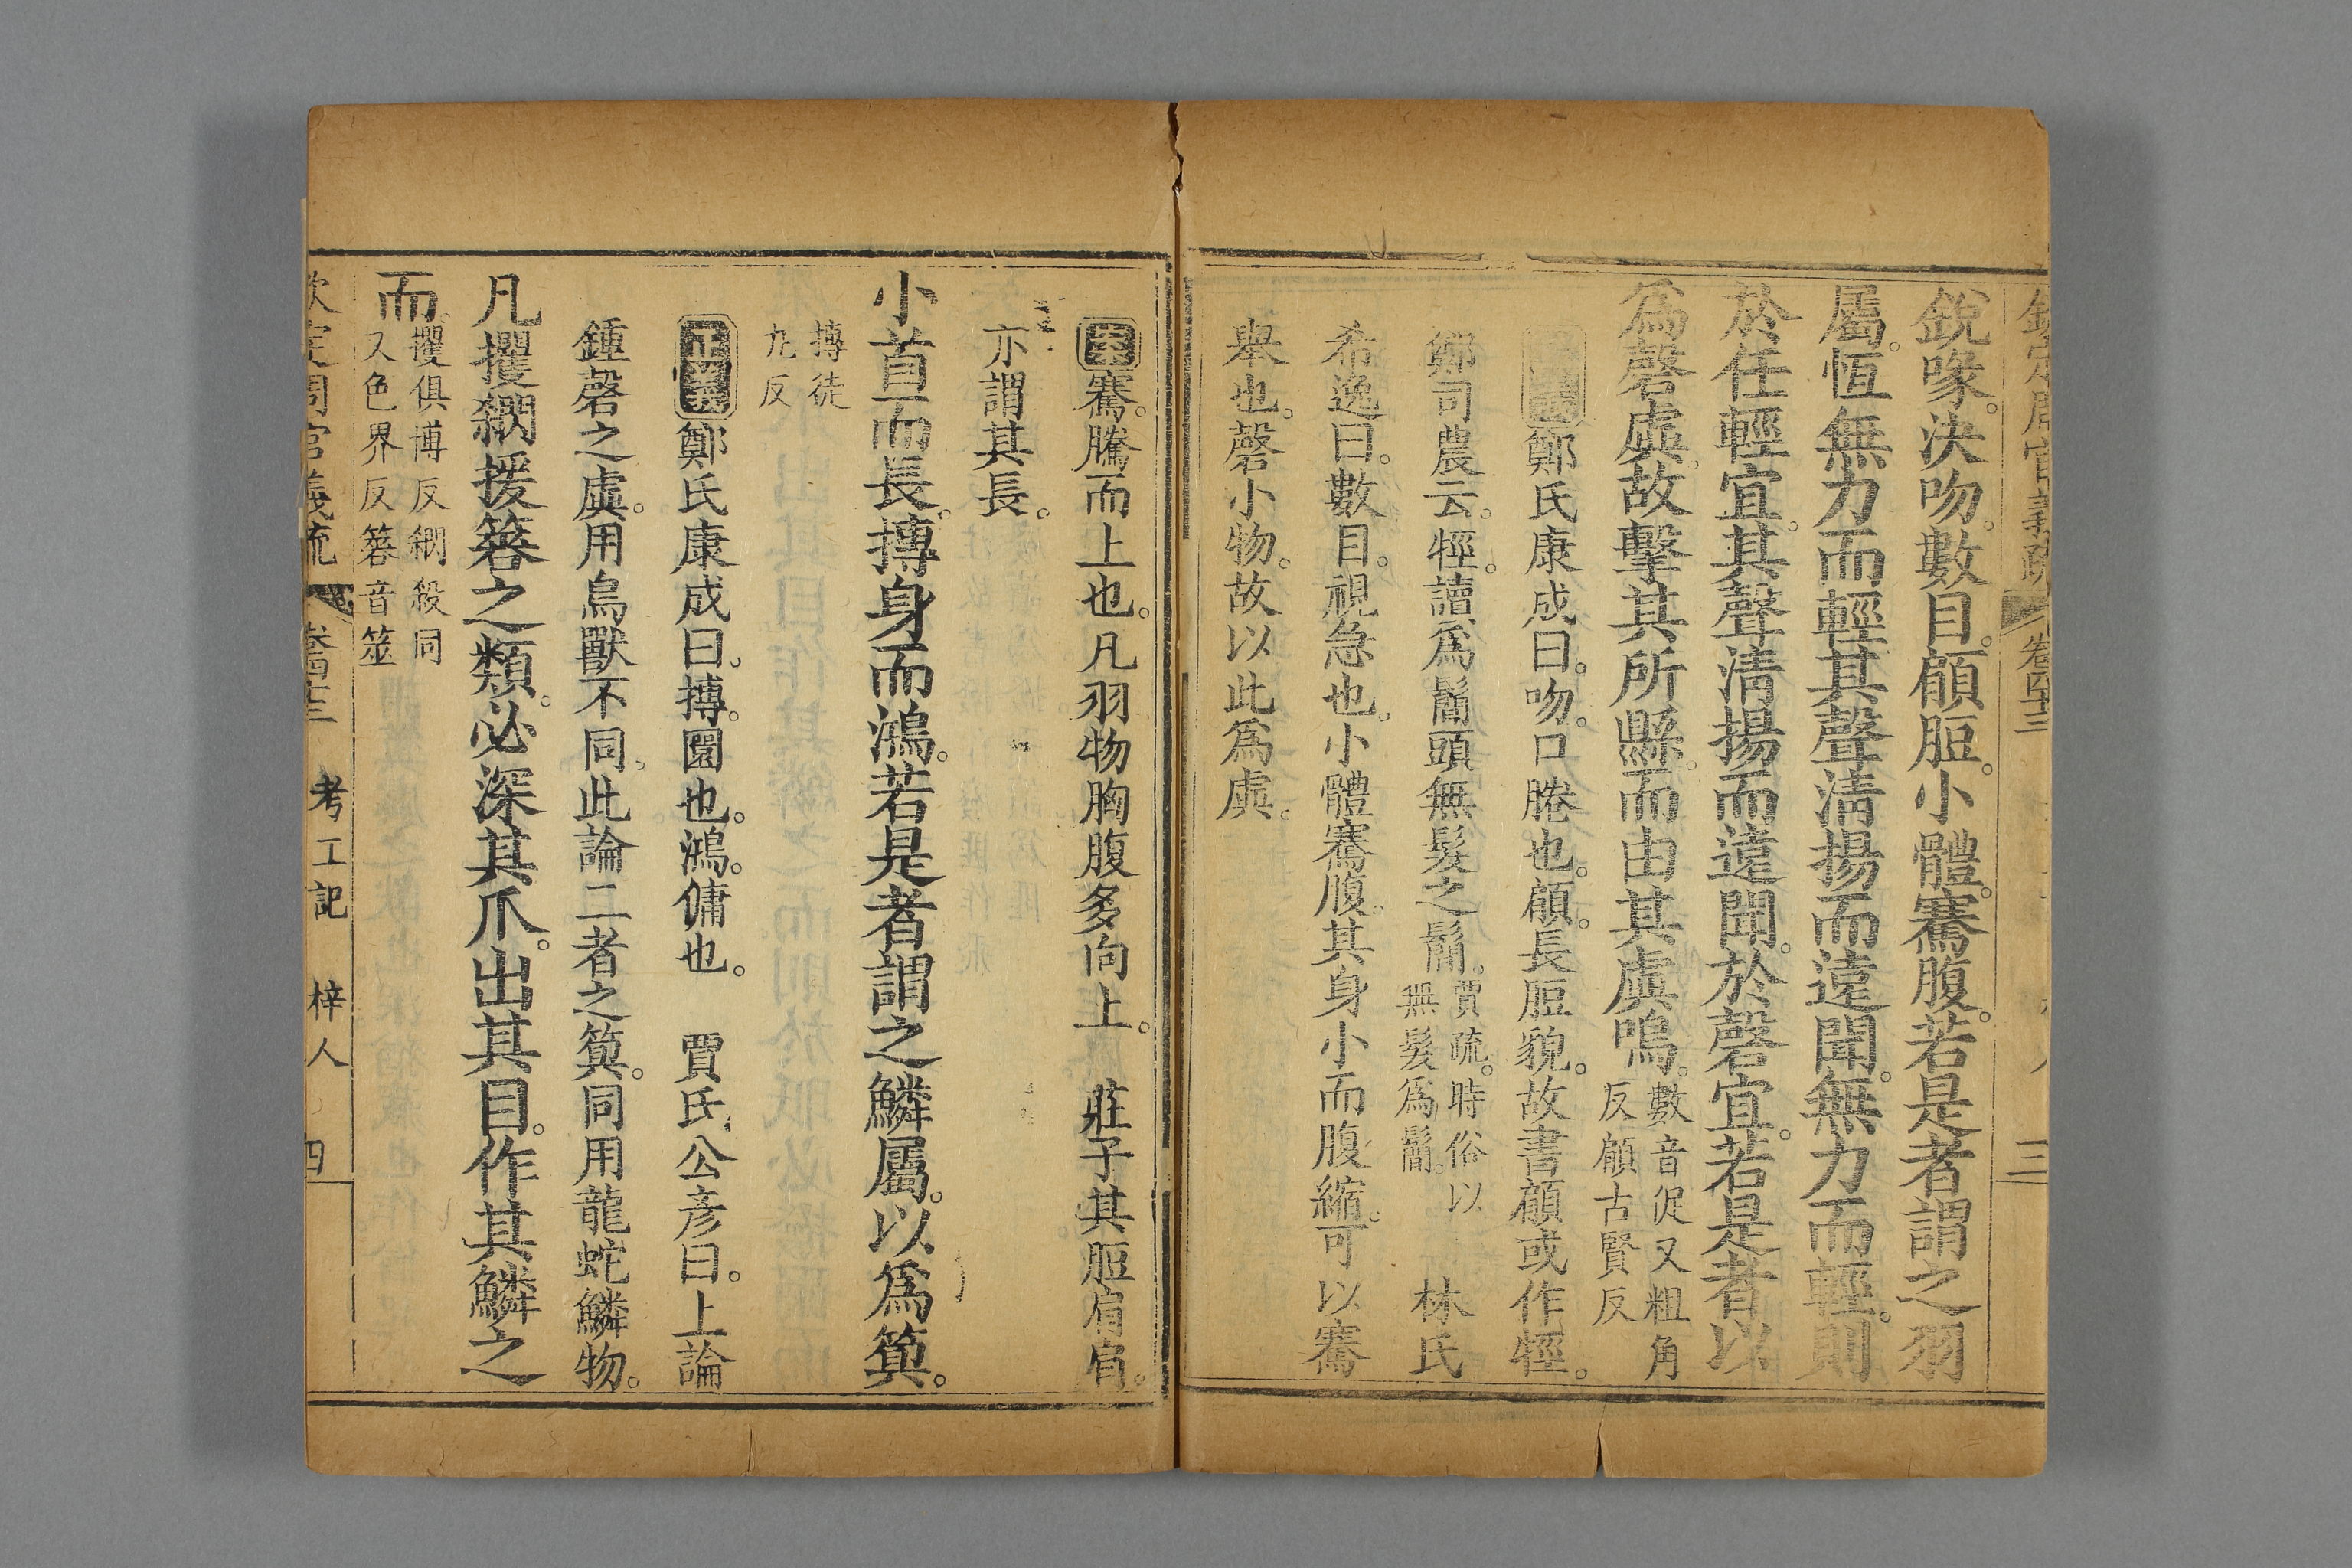 欽定周官義疏 卷四十三 三
銳喙。決吻。數目。顅脰。小體。騫腹。若是者謂之羽
屬。恆無力而輕。其聲淸揚而遠聞。無力而輕。則
於任輕宜。其聲淸揚而遠聞。於磬宜。若是者以
爲磬虡。故擊其所縣。而由其虡鳴。數音促又粗角反顅古賢反
鄭氏康成曰。吻。口腃也。顅。長脰貌。故書顅或作牼。
鄭司農云。牼。讀爲鬜頭無髮之鬜。賈疏。時俗以無髮爲鬜。 林氏
希逸曰。數目。視急也。小體騫腹。其身小而腹縮。可以騫
舉也。磬小物。故以此爲虡。
案騫。騰而上也。凡羽物胸腹多向上。 莊子其脰肩肩。
亦謂其長。
小首而長。摶身而鴻。若是者謂之鱗屬。以爲筍。
摶徒九反
正義鄭氏康成曰。摶。圜也。鴻。傭也。 賈氏公彥曰。上論
鍾磬之虡。用鳥獸不同。此論二者之筍。同用龍蛇鱗物。
凡攫閷援簭之類。必深其爪。出其目。作其鱗之
而。攫俱博反閷殺同又色界反簭音筮
欽定周官義疏 卷四十三 考工記 梓人 四